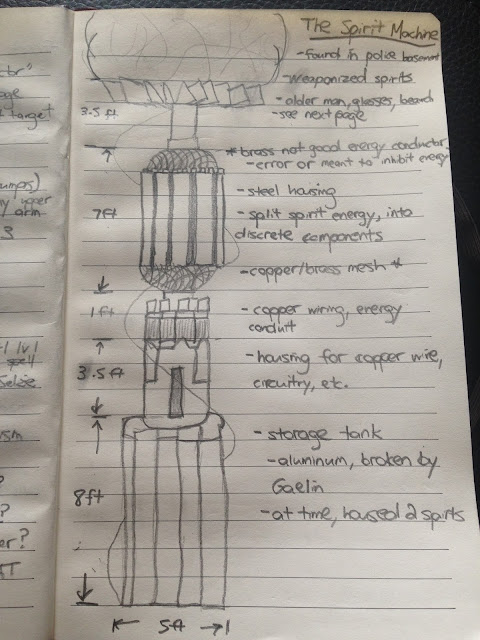 The Spirit Machine
- found in police basement
- weaponized spirits
- older man, glasses, beard
- see next page
* brass not good energy conductor
- error or meant to inhibit energy
- steel housing
- split spirit energy, into
discrete components
- copper/brass mesh *
- copper wiring, energy
conduit
- housing for copper wire,
circuitry, etc.
- storage tank
- aluminum, broken by
Gaelin
- at time, housed 2 spirits
3.5 ft
7ft
1ft
3.5 ft
8ft
5ft
target
upper
arm